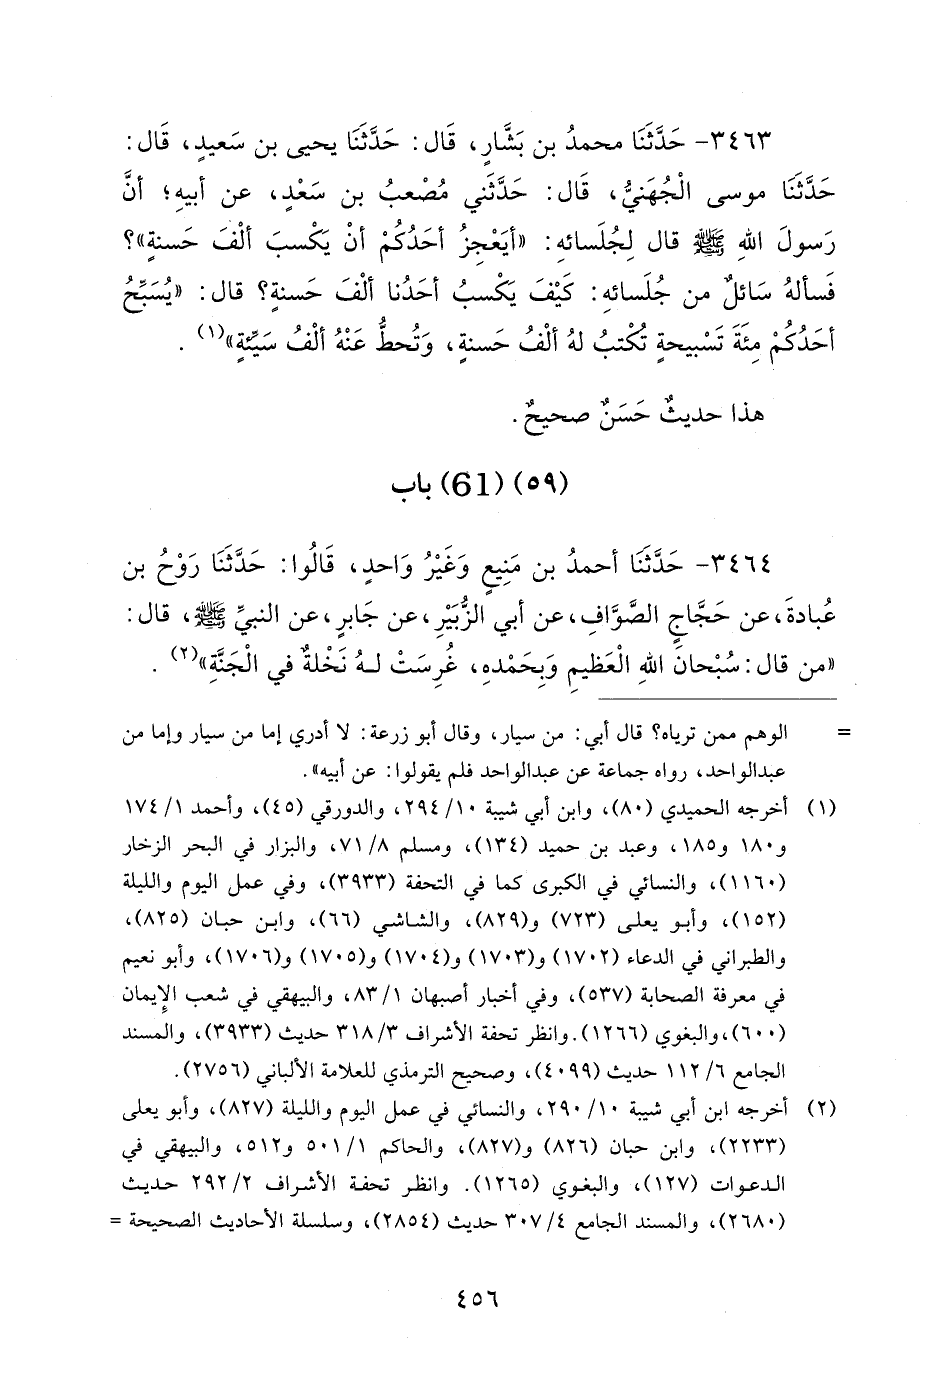 ٣٤٦٣- حَدَّثَنَا محمدُ بن بَشَّارٍ، قَال: حَدَّثَنَا يحيى بن سَعيدٍ، قَال:
حَدَّثَنَا موسى الْجُهَنيُّ، قَال: حَدَّثَني مُصْعبُ بن سَعْدٍ، عن أبيهِ؛ أنَّ
رَسولَ اللهِ ﷺ قال لِجُلَسائهِ: «أيَعْجزُ أحَدُكُمْ أنْ يَكْسبَ ألْفَ حَسنةٍ»؟
فَسألهُ سَائلٌ من جُلَسائهِ: كَيْفَ يَكْسبُ أحَدُنا ألْفَ حَسنةٍ؟ قال: «يُسَبِّحُ
أحَدُكُمْ مِئَةَ تَسْبيحةٍ تُكْتبُ لهُ ألْفُ حَسنةٍ، وَتُحطُّ عَنْهُ ألْفُ سَيِّئةٍ»(١) .
هذا حديثٌ حَسَنٌ صحيحٌ.
(٥٩) (61) باب
٣٤٦٤- حَدَّثَنَا أحمدُ بن مَنِيعٍ وَغَيْرُ وَاحدٍ، قَالُوا: حَدَّثَنَا رَوْحُ بن
عُبادةَ، عن حَجَّاجٍ الصَّوَّافِ، عن أبي الزُّبَيْرِ، عن جَابرٍ، عن النبيِّ ﷺ، قال:
«من قال: سُبْحانَ اللهِ الْعَظيمِ وَبِحَمْدهِ، غُرِسَتْ لـهُ نَخْلةٌ في الْجَنَّةِ»(٢) .
= الوهم ممن ترياه؟ قال أبي: من سيار، وقال أبو زرعة: لا أدري إما من سيار وإما من
عبدالواحد، رواه جماعة عن عبدالواحد فلم يقولوا: عن أبيه».
(١) أخرجه الحميدي (٨٠)، وابن أبي شيبة ٢٩٤/١٠، والدورقي (٤٥)، وأحمد ١٧٤/١
و١٨٠ و١٨٥، وعبد بن حميد (١٣٤)، ومسلم ٧١/٨، والبزار في البحر الزخار
(١١٦٠)، والنسائي في الكبرى كما في التحفة (٣٩٣٣)، وفي عمل اليوم والليلة
(١٥٢)، وأبو يعلى (٧٢٣) و(٨٢٩)، والشاشي (٦٦)، وابن حبان (٨٢٥)،
والطبراني في الدعاء (١٧٠٢) و(١٧٠٣) و(١٧٠٤) و(١٧٠٥) و(١٧٠٦)، وأبو نعيم
في معرفة الصحابة (٥٣٧)، وفي أخبار أصبهان ٨٣/١، والبيهقي في شعب الإيمان
(٦٠٠)، والبغوي (١٢٦٦). وانظر تحفة الأشراف ٣١٨/٣ حديث (٣٩٣٣)، والمسند
الجامع ١١٢/٦ حديث (٤٠٩٩)، وصحيح الترمذي للعلامة الألباني (٢٧٥٦).
(٢) أخرجه ابن أبي شيبة ٢٩٠/١٠، والنسائي في عمل اليوم والليلة (٨٢٧)، وأبو يعلى
(٢٢٣٣)، وابن حبان (٨٢٦) و(٨٢٧)، والحاكم ٥٠١/١ و٥١٢، والبيهقي في
الدعوات (١٢٧)، والبغوي (١٢٦٥). وانظر تحفة الأشراف ٢٩٢/٢ حديث
(٢٦٨٠)، والمسند الجامع ٣٠٧/٤ حديث (٢٨٥٤)، وسلسلة الأحاديث الصحيحة =
٤٥٦